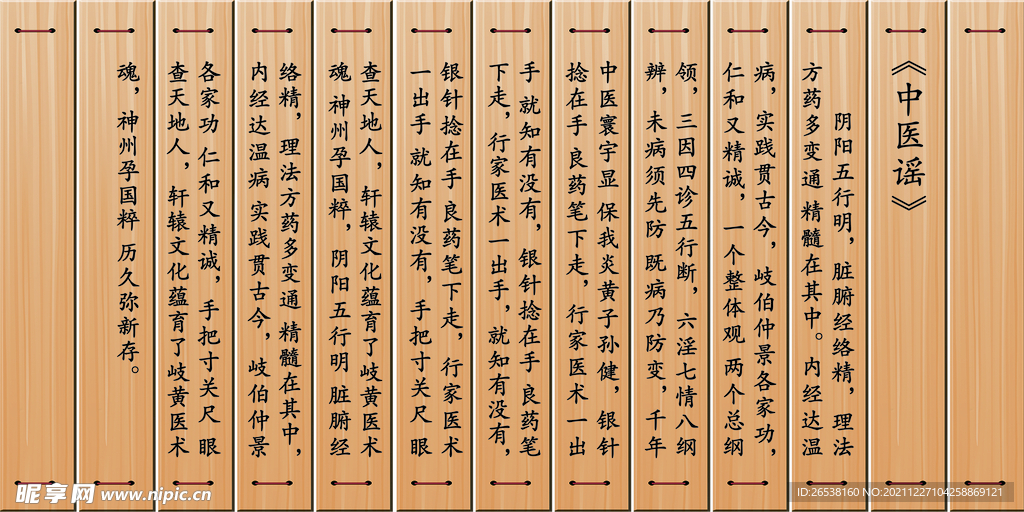 《中医谣》
阴阳五行明，脏腑经络精，理法
方药多变通 精髓在其中。内经达温
病，实践贯古今，岐伯仲景各家功，
仁和又精诚，一个整体观 两个总纲
领，三因四诊五行断，六淫七情八纲
辨，未病须先防 既病乃防变，千年
中医寰宇显 保我炎黄子孙健，银针
捻在手 良药笔下走，行家医术一出
手 就知有没有，银针捻在手 良药笔
下走，行家医术一出手，就知有没有，
银针捻在手 良药笔下走，行家医术
一出手 就知有没有，手把寸关尺 眼
查天地人，轩辕文化蕴育了岐黄医术
魂 神州孕国粹，阴阳五行明 脏腑经
络精，理法方药多变通 精髓在其中，
内经达温病 实践贯古今，岐伯仲景
各家功 仁和又精诚，手把寸关尺 眼
查天地人，轩辕文化蕴育了岐黄医术
魂，神州孕国粹 历久弥新存。
昵享网 www.nipic.cn
ID:26538160 NO:20211227104258869121